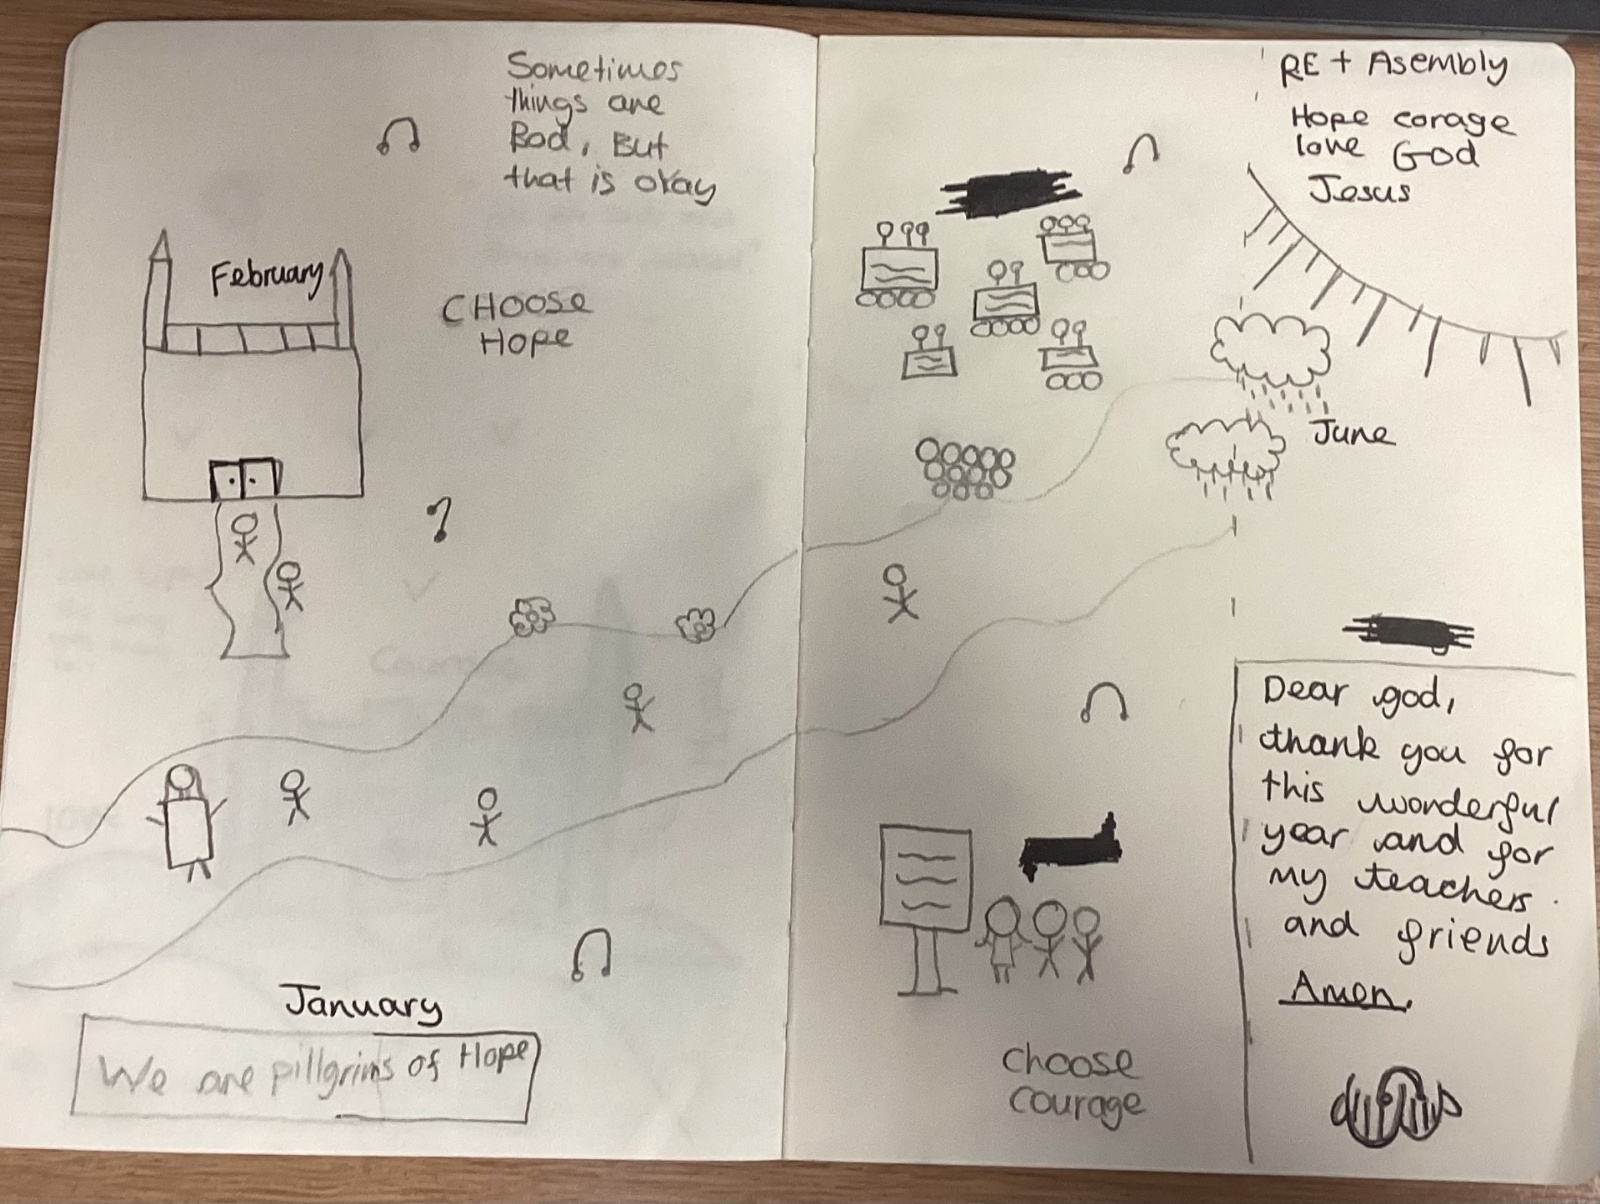 Sometimes
things are
Bad, But
that is okay
February
CHOOSE
HOPE
January
We are pillgrims of Hope
RE + Asembly
Hope corage
love God
Jesus
June
choose
courage
Dear god,
thank you for
this wonderful
year and for
my teachers
and friends
Amen.